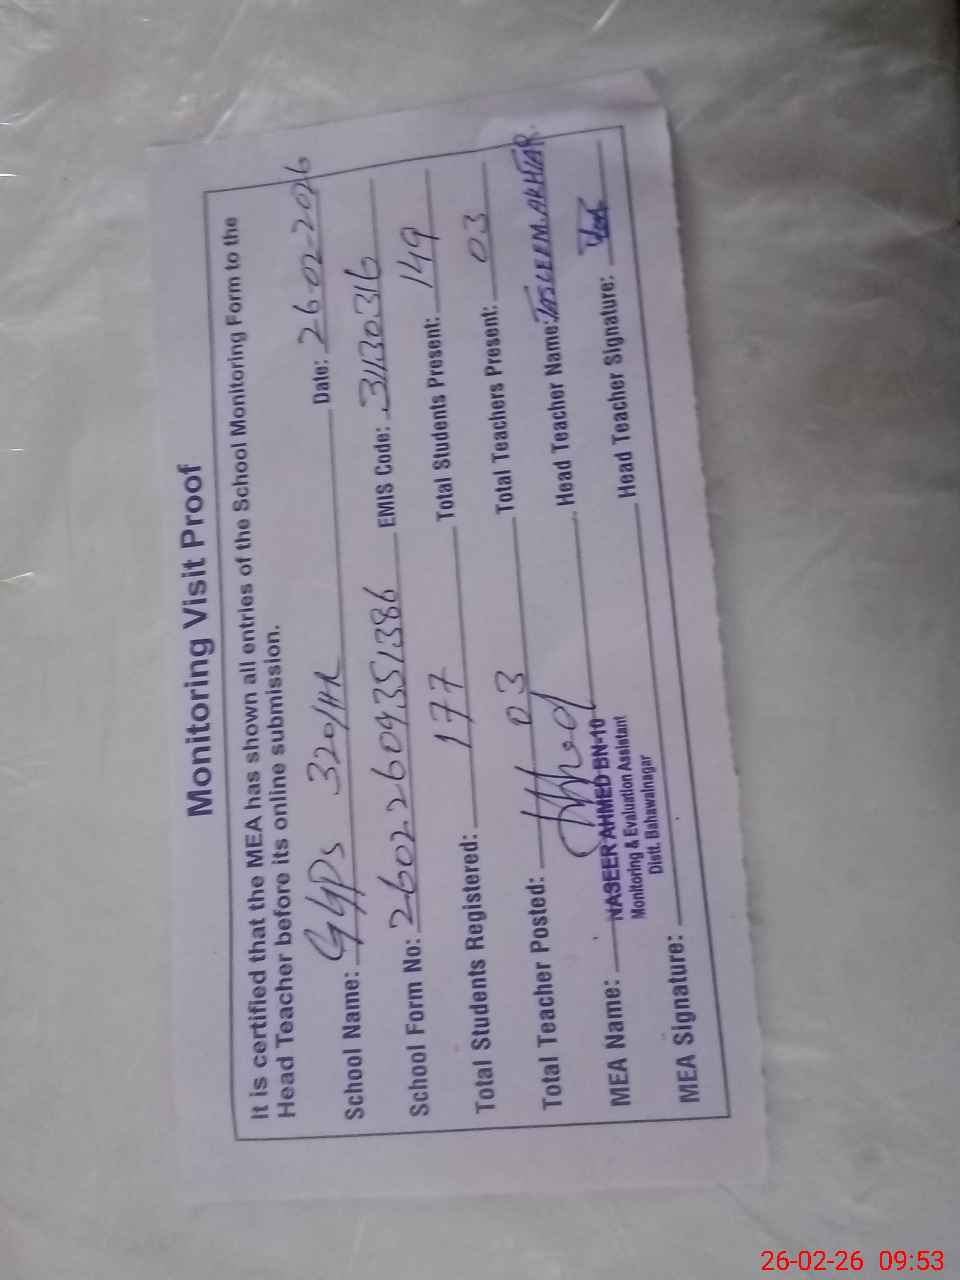 Monitoring Visit Proof
It is certified that the MEA has shown all entries of the School Monitoring Form to the
Head Teacher before its online submission.
School Name: GGPS 320/HR Date: 26-02-2026
School Form No: 26022609351386 EMIS Code: 31130316
Total Students Registered: 177 Total Students Present: 149
Total Teacher Posted: 03 Total Teachers Present: 03
MEA Name: Head Teacher Name: TASLEEM AKHTAR.
NASEER AHMED BN-10
Monitoring & Evaluation Assistant
Distt. Bahawalnagar
MEA Signature: Head Teacher Signature:
26-02-26 09:53